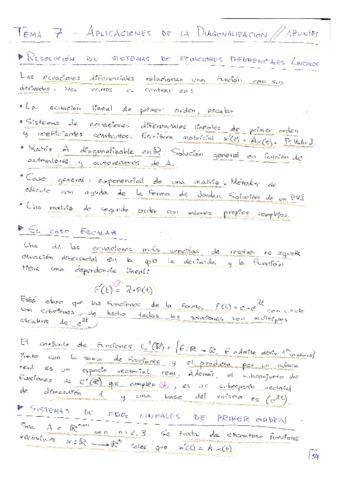 TEMA 7 - APLICACIONES DE LA DIAGONALIZACIÓN // APUNTES
▸ RESOLUCIÓN DE SISTEMAS DE ECUACIONES DIFERENCIALES LINEALES
Las ecuaciones diferenciales relacionan una función con sus
derivadas. Nos vamos a centrar en:
• La ecuación lineal de primer orden, escalar
• Sistema de ecuaciones diferenciales lineales de primer orden
y coeficientes constantes. Escritura matricial x'(t) = Ax(t).
• Matriz A diagonalizable en ℝ. Solución general en función de
autovalores y autovectores de A.
• Caso general: exponencial de una matriz. Métodos de
cálculo con ayuda de la forma de Jordan. Solución de un PVI
• Una matriz de segundo orden con valores propios complejos.
▸ EL CASO ESCALAR
Una de las ecuaciones más sencillas de resolver es aquella
ecuación diferencial en la que la derivada y la función
tiene una dependencia lineal:
F'(t) = λ·F(t)
Está claro que las funciones de la forma F(t) = c·e^λt con c∈ℝ
son soluciones, de hecho todas las soluciones son múltiplos
escalares de e^λt
El conjunto de funciones C¹(ℝ) = {F: ℝ → ℝ, F admite deriv. 1ª
junto con la suma de funciones, y el producto por un número
real es un espacio vectorial real. Además, el subconjunto de
funciones de C¹(ℝ) que cumplen, es un subespacio vectorial
de dimensión 1 y una base del mismo es (e^λt).
▸ SISTEMAS DE EDOS LINEALES DE PRIMER ORDEN
Sea A = ℝⁿˣⁿ con n = 2, 3. Se trata de encontrar funciones
vectoriales x: ℝ → ℝⁿ tales que x'(t) = A·x(t)